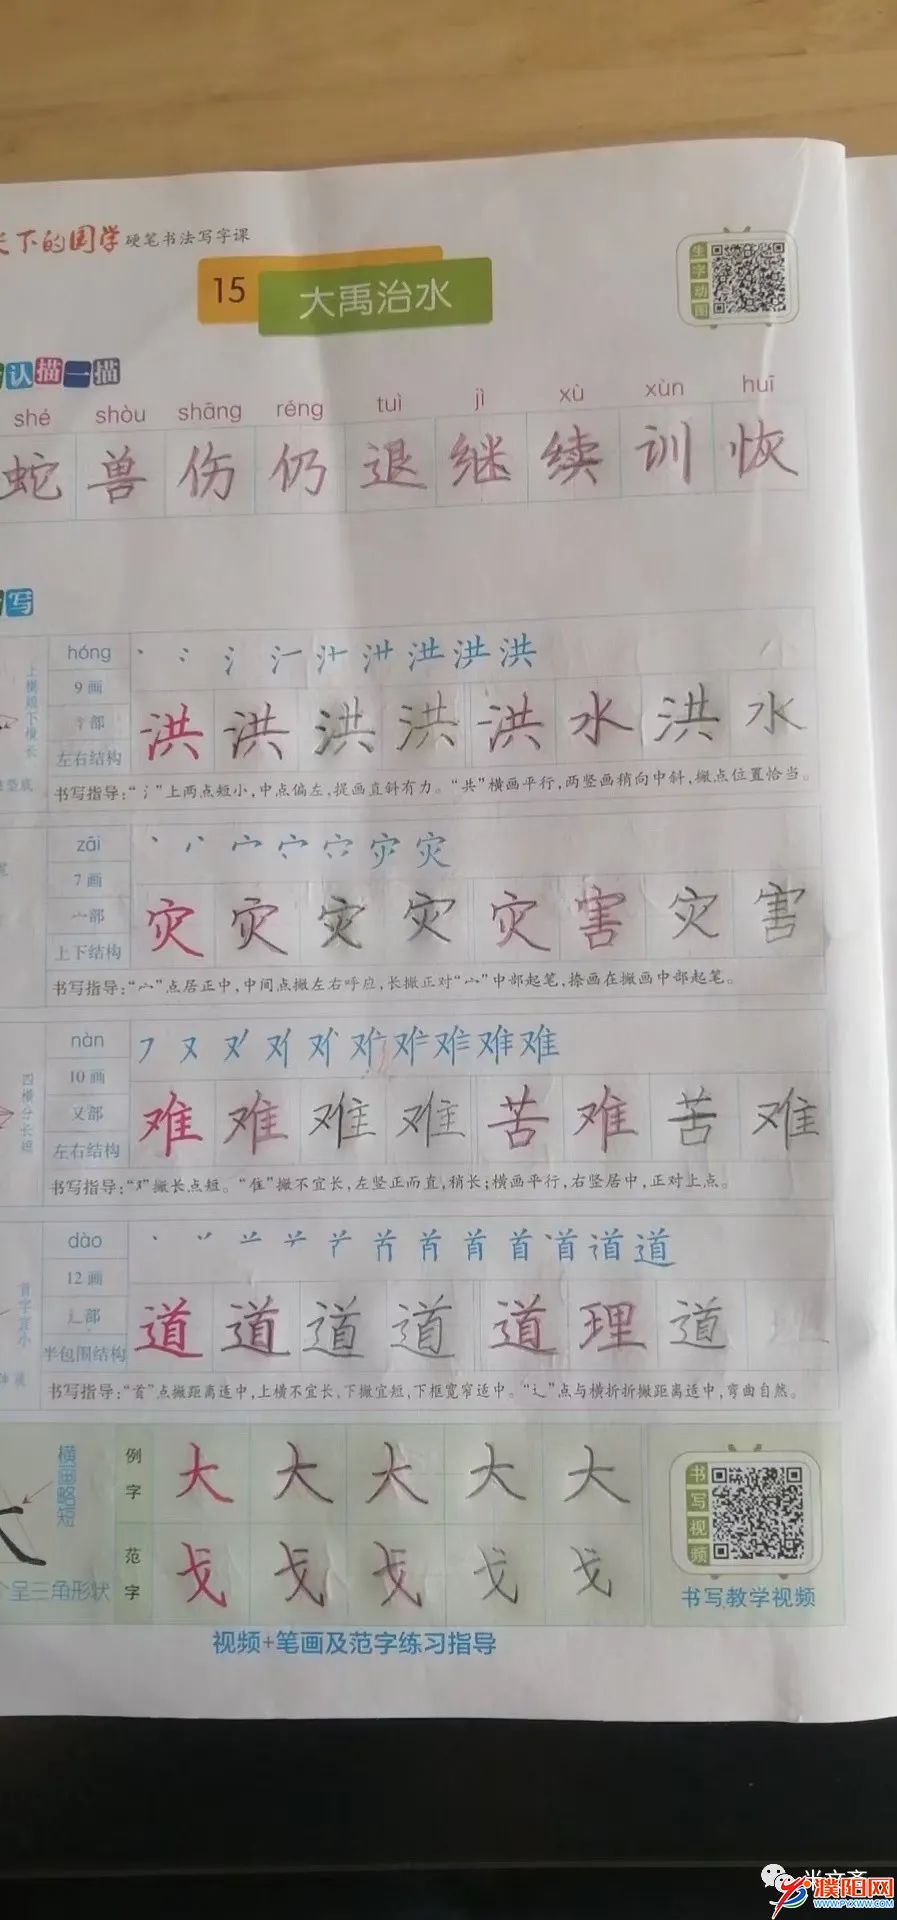 天下的国学 硬笔书法写字课
15 大禹治水
生字动图
认描一描
shé shòu shāng réng tuì jì xù xùn huī
蛇 兽 伤 仍 退 继 续 训 恢
写
上横短下横长
hóng
9画
氵部
左右结构
丶 冫 氵 汁 洪 洪 洪
洪 洪 洪 洪 洪 水 洪 水
书写指导:“氵”上两点短小,中点偏左,提画直斜有力。“共”横画平行,两竖画稍向中斜,撇点位置恰当。
zāi
7画
宀部
上下结构
灾 灾
灾 灾 灾 灾 灾 害 灾 害
书写指导:“宀”点居正中,中间点撇左右呼应,长撇正对“宀”中部起笔,捺画在撇画中部起笔。
四横分长短
nàn
10画
又部
左右结构
又 难 难
难 难 难 难 苦 难 苦 难
书写指导:“又”撇长点短。“隹”撇不宜长,左竖正而直,稍长;横画平行,右竖居中,正对上点。
首字宜小
dào
12画
辶部
半包围结构
丶 丷 首 首 道 道
道 道 道 道 道 理 道
书写指导:“首”点撇距离适中,上横不宜长,下撇宜短,下框宽窄适中。“辶”点与横折折撇距离适中,弯曲自然。
横画略短
呈三角形状
例字 大 大 大 大 大
范字 戈 戈 戈 戈 戈
书写视频
书写教学视频
视频+笔画及范字练习指导
濮阳网
WWW.PYXWW.COM